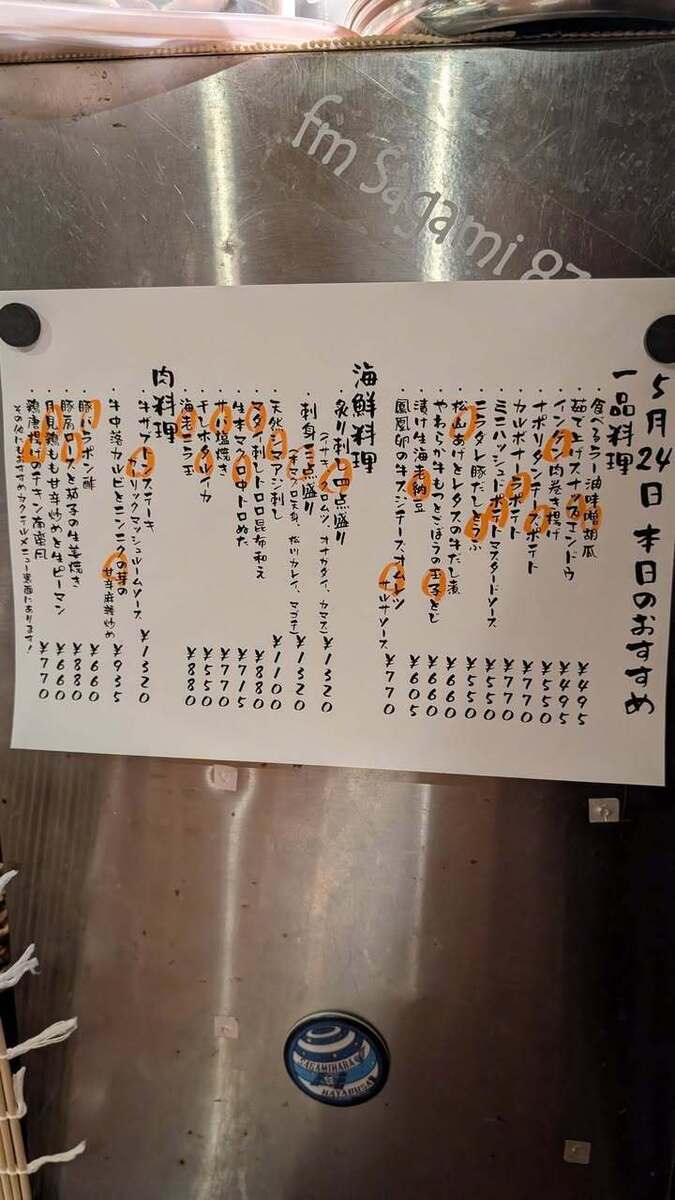 fm Sagami 83
5月24日 本日のおすすめ
一品料理
・食べるラー油味噌胡瓜 ¥495
・茹で上げスナップエンドウ ¥495
・インゲン肉巻き揚げ ¥550
・ナポリタンチーズポテト ¥770
・カルボナーラポテト ¥770
・ミニハッシュドポテトマスタードソース ¥550
・ニラダレ豚だしとうふ ¥550
・松山あげとレタスの牛だし煮 ¥660
・やわらか牛もつとごぼうの玉子とじ ¥660
・漬け生海老納豆 ¥605
・鳳凰卵の牛スジチーズオムレツ
サルサソース ¥770
海鮮料理
・炙り刺し四点盛り
(イサキ、クロムツ、オナガダイ、カマス) ¥1320
・刺身三点盛り
(本マグロ天身、松川カレイ、マゴチ) ¥1320
・天然シマアジ刺し ¥1100
・マダイ刺しトロロ昆布和え ¥880
・生本マグロ中トロぬた ¥715
・サバ塩焼き ¥770
・干しホタルイカ ¥550
・海老ニラ玉 ¥880
肉料理
・牛ザブトンステーキ
ガーリックマッシュルームソース ¥1320
・牛中落カルビとニンニクの芽の
甘辛麻辣炒め ¥935
・豚バラポン酢 ¥660
・豚肩ロースと茄子の生姜焼き ¥880
・月見鶏もも甘辛炒めと生ピーマン ¥660
・鶏唐揚げのチキン南蛮風 ¥770
その他にもおすすめカクテルメニュー裏面にあります!
SAGAMIHARA
HAYABUSA